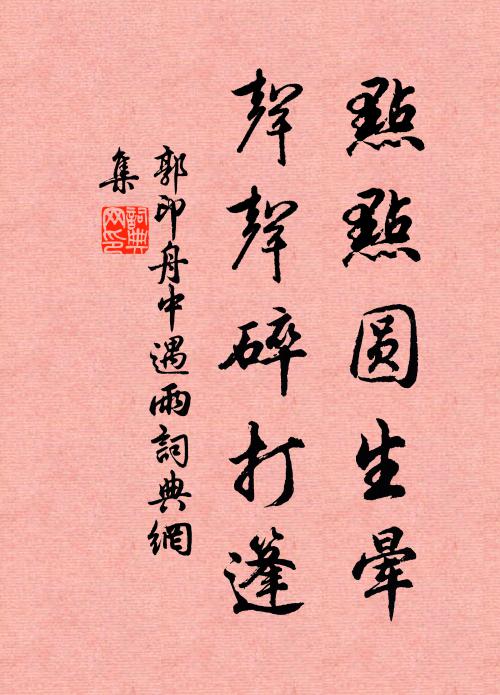 點點圆生暈
聲聲碎打篷
郭印舟中遇雨詞典網
集
詞典网印